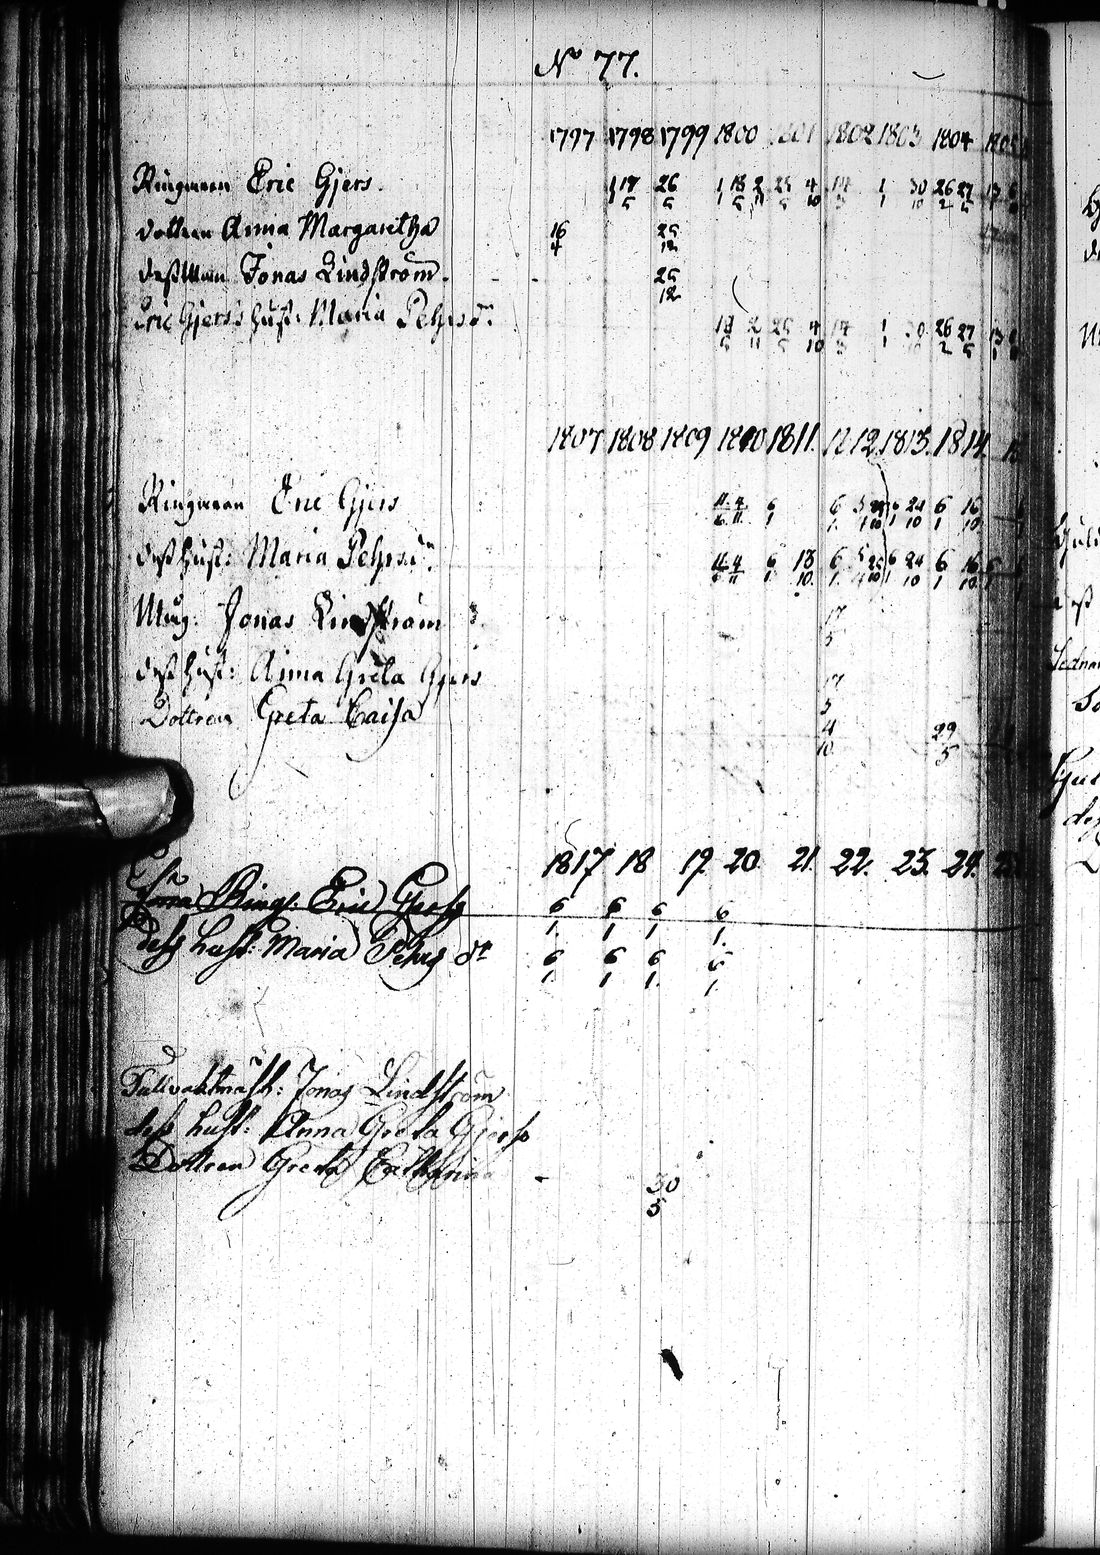 No 77.
1797 1798 1799 1800 1801 1802 1803 1804 1805
Ringaren Eric Gjers. 17/5 26/5 1/1 18/5 2/11 25/5 4/10 14/5 1/1 30/10 26/2 27/5 13
dottren Anna Margaretha 16/4 25/12
dess Man Jonas Lindström 25/12
Eric Gjers's Hust: Maria Pehrsdr. 18/5 2/11 25/5 4/10 14/5 1/1 30/10 26/2 27/5 13
1807 1808 1809 1810 1811. 12. 1813. 1814.
Ringaren Eric Gjers 4/11 6/1 6/1 24/10 6/1 16/10
dess Hust: Maria Pehrsdr. 4/11 6/1 18/10. 6/1 6/1 24/10 6/1 16/10
Jonas Lindström 17/5
dess Hust: Anna Greta Gjers 17/5
Dottren Greta Caisa 4/10 29/5
1817 18 19. 20. 21. 22. 23. 24. 25.
Ring. Eric Gjers 6/1 6/1 6/1 6/1
dess hust: Maria Pehrs dr 6/1 6/1 6/1 6/1
Tullvaktmäst: Jonas Lindström
dess hust: Anna Greta Gjers
Dottren Greta Catharina 30/5